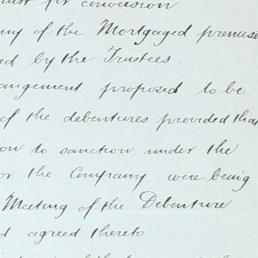 trust for conversion
any of the Mortgaged premises
ed by the Trustees.
rangement proposed to be
of the debentures provided that
on to sanction under the
or the Company were being
Meeting of the Debenture
d agreed thereto